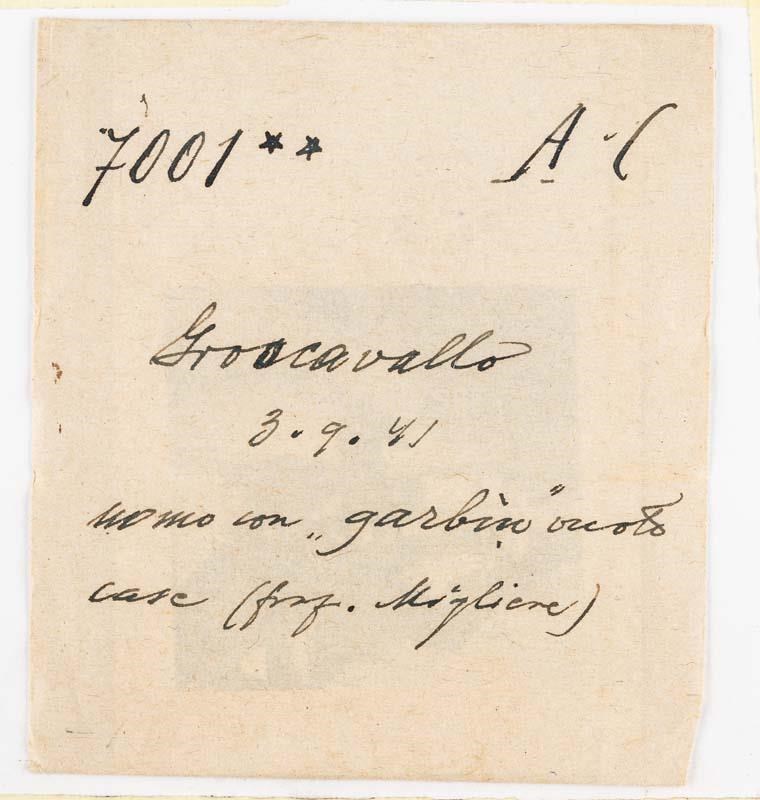 7001** A·C
Groscavallo
3.9.41
uomo con „garbin” vuoto
case (fraz. Migliere)